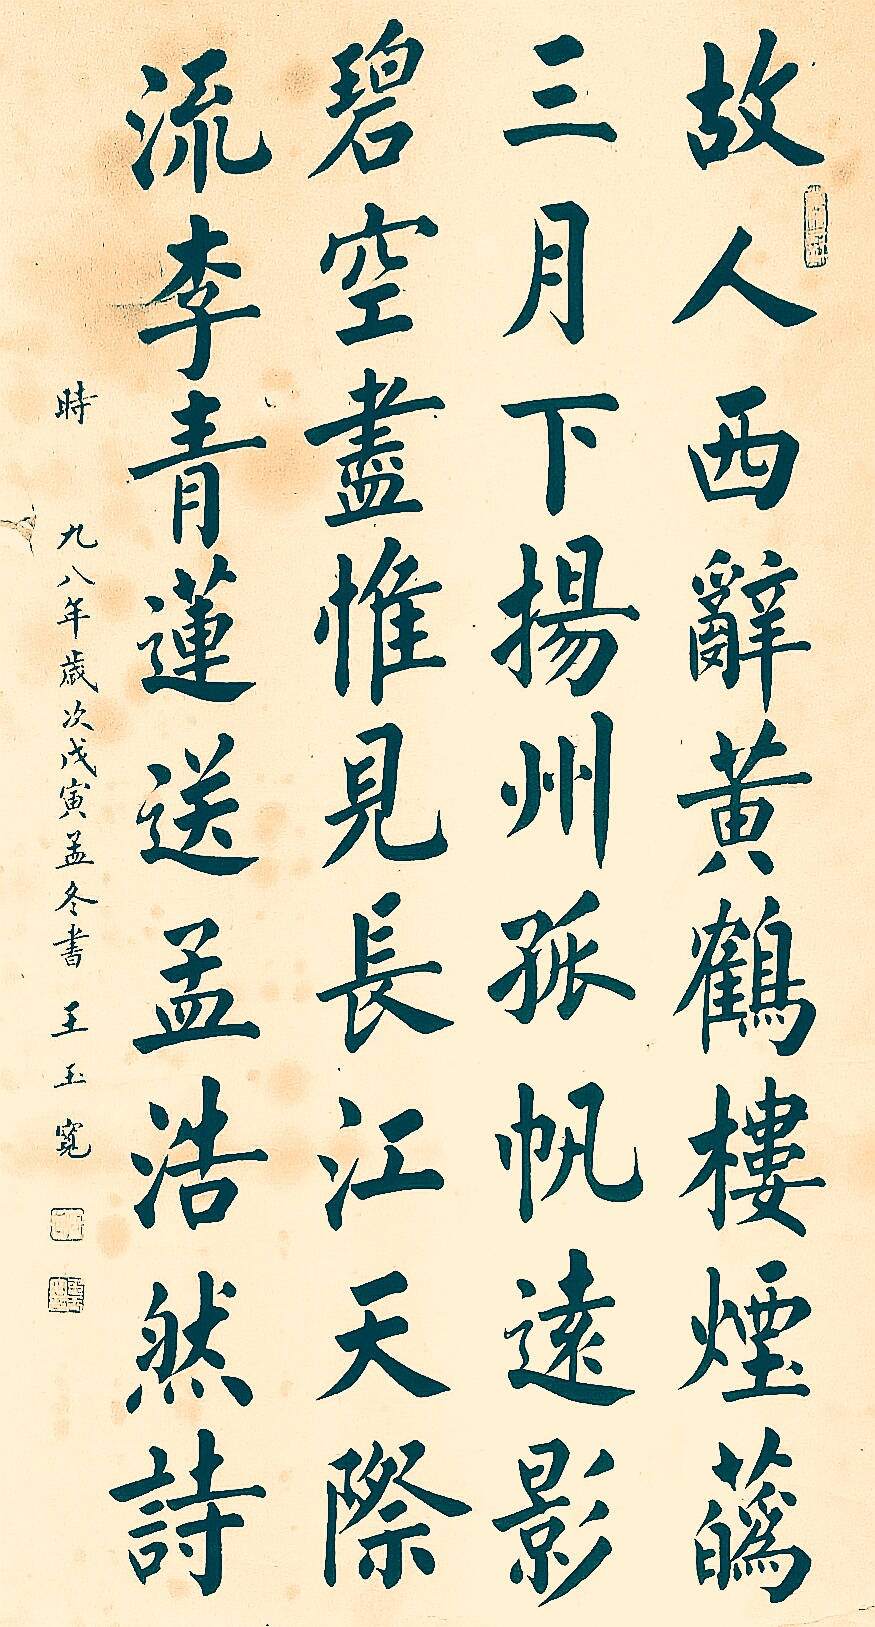 故人西辭黃鶴樓煙蘤
三月下揚州孤帆遠影
碧空盡惟見長江天際
流李青蓮送孟浩然詩
時 九八年歲次戊寅孟冬書 王玉寬